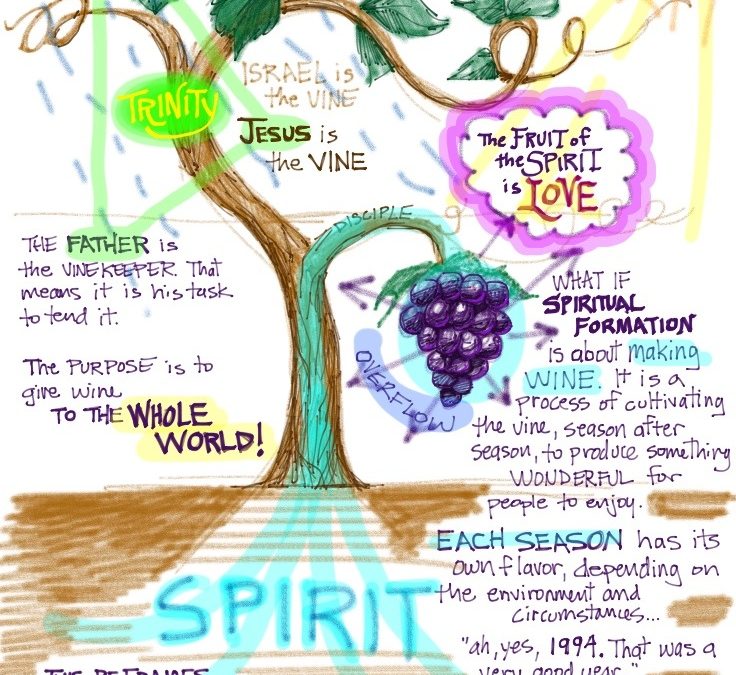 TRINITY
ISRAEL is
the VINE
JESUS is
the VINE
The FRUIT of
the SPIRIT
is LOVE
DISCIPLE
THE FATHER is
the VINEKEEPER. That
means it is his task
to tend it.
The PURPOSE is to
give wine
TO THE WHOLE
WORLD!
OVERFLOW
WHAT IF
SPIRITUAL
FORMATION
is about making
WINE. It is a
process of cultivating
the vine, season after
season, to produce something
WONDERFUL for
people to enjoy.
EACH SEASON has its
own flavor, depending on
the environment and
circumstances...
"ah, yes, 1994. That was a
very good year."
SPIRIT